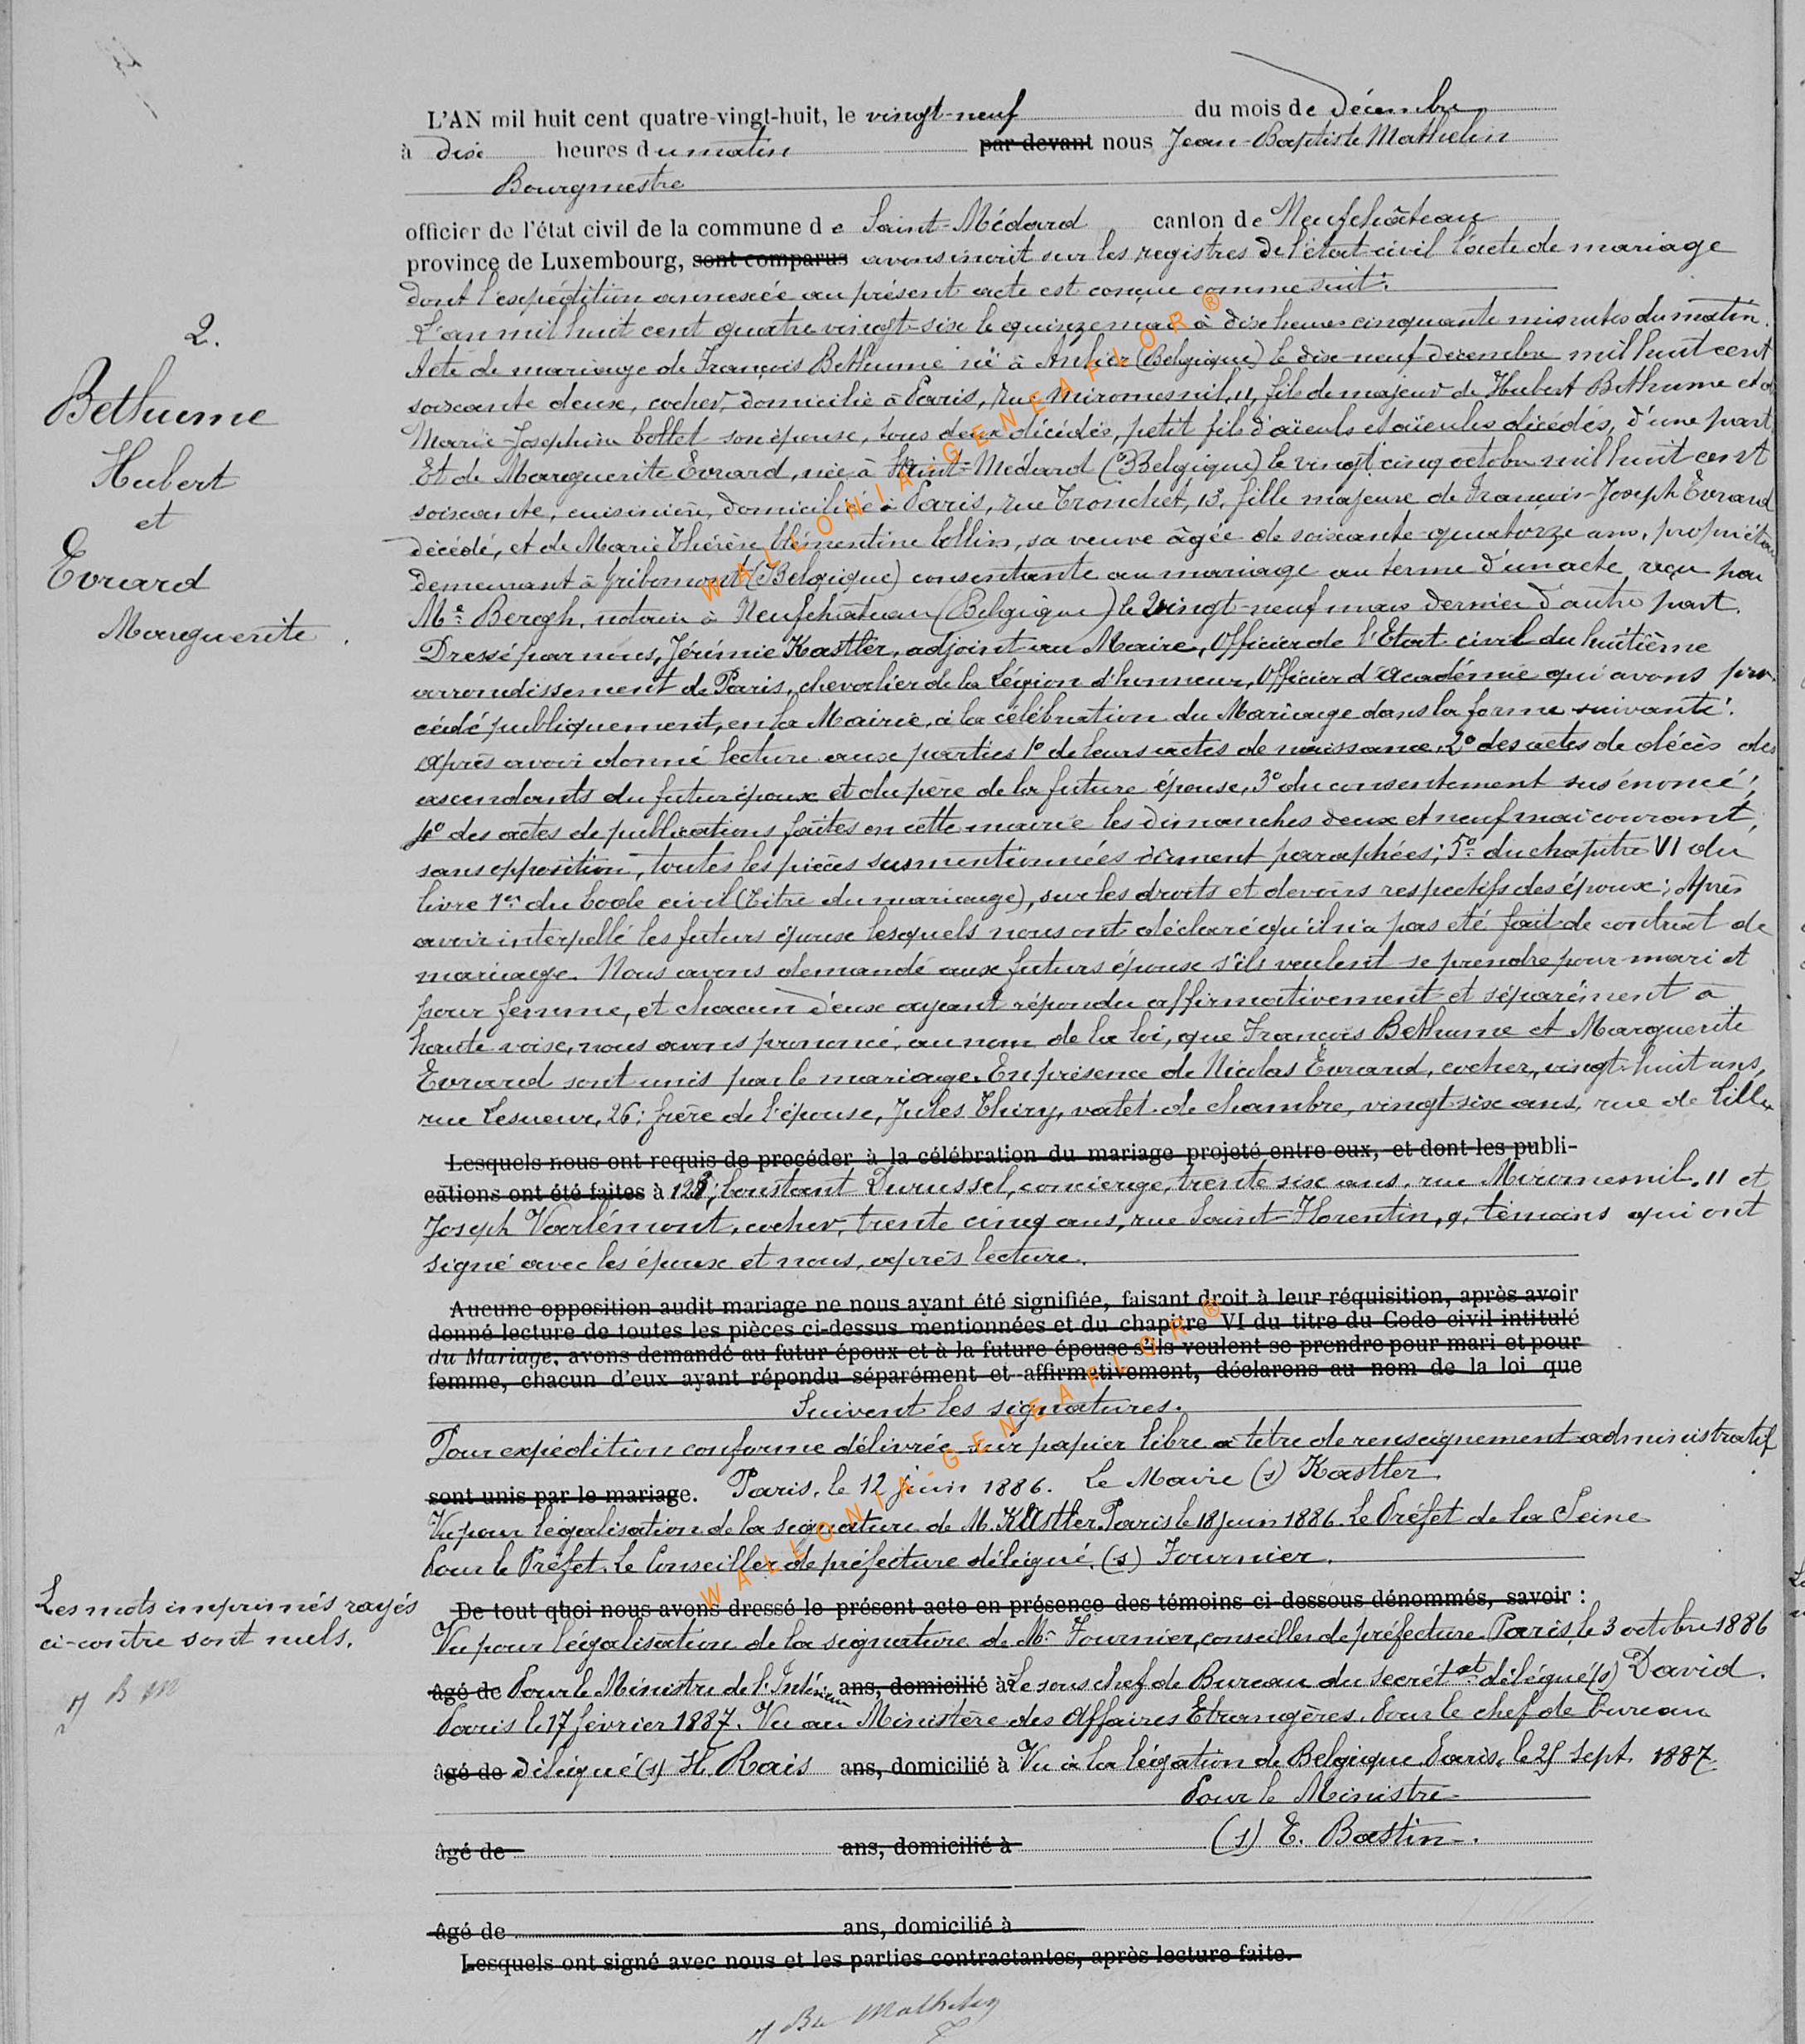 L'AN mil huit cent quatre-vingt-huit, le vingt-neuf du mois de Décembre
à dix heures du matin par devant nous Jean-Baptiste Mathelin
Bourgmestre
officier de l'état civil de la commune de Saint-Médard canton de Neufchâteau
province de Luxembourg, sont comparus avons inscrit sur les registres de l'état civil l'acte de mariage
dont l'expédition annexée au présent acte est conçue comme suit:
L'an mil huit cent quatre vingt-six le quinze mai à dix heures cinquante minutes du matin.
Acte de mariage de François Bethume né à Anlier (Belgique) le dix-neuf décembre mil huit cent
soixante deux, cocher, domicilié à Paris, rue Miromesnil, 11, fils de majeur de Hubert Bethume et de
Marie-Josephine Collet son épouse, tous deux décédés, petit fils d'aïeuls et aïeules décédés, d'une part
Et de Marguerite Evrard, née à Saint-Médard (Belgique) le vingt cinq octobre mil huit cent
soixante, cuisinière, domiciliée à Paris, rue Tronchet, 13, fille majeure de François-Joseph Evrard
décédé, et de Marie Thérèse Clémentine Collin, sa veuve âgée de soixante-quatorze ans, propriétaire
demeurant à Gribomont (Belgique) consentante au mariage au terme d'un acte reçu par
Me Bergh, notaire à Neufchâteau (Belgique) le vingt-neuf mars dernier d'autre part.
Dressé par nous, Jérémie Kastler, adjoint au Maire, Officier de l'Etat civil du huitième
arrondissement de Paris, chevalier de la Légion d'honneur, Officier d'académie qui avons pro-
cédé publiquement, en la Mairie, à la célébration du Mariage dans la forme suivante:
après avoir donné lecture aux parties 1o de leurs actes de naissance, 2o des actes de décès des
ascendants du futur époux et du père de la future épouse, 3o du consentement sus énoncé;
4o des actes de publications faites en cette mairie les dimanches deux et neuf mai courant,
sans opposition, toutes les pièces susmentionnées dûment paraphées; 5o du chapitre VI du
livre 1er du Code civil (Titre du mariage), sur les droits et devoirs respectifs des époux; Après
avoir interpellé les futurs époux lesquels nous ont déclaré qu'il n'a pas été fait de contrat de
mariage. Nous avons demandé aux futurs époux s'ils veulent se prendre pour mari et
pour femme, et chacun d'eux ayant répondu affirmativement et séparément à
haute voix, nous avons prononcé, au nom de la loi, que François Bethume et Marguerite
Evrard sont unis par le mariage. En présence de Nicolas Evrard, cocher, vingt-huit ans,
rue Lesueur, 26; frère de l'épouse, Jules Thiry, valet de chambre, vingt-six ans, rue de Lille
Lesquels nous ont requis de procéder à la célébration du mariage projeté entre eux, et dont les publi-
cations ont été faites à 123; Constant Durussel, concierge, trente six ans, rue Miromesnil, 11 et
Joseph Varlémont, cocher, trente cinq ans, rue Saint-Florentin, 9, témoins qui ont
signé avec les époux et nous, après lecture.
Aucune opposition audit mariage ne nous ayant été signifiée, faisant droit à leur réquisition, après avoir
donné lecture de toutes les pièces ci-dessus mentionnées et du chapitre VI du titre du Code civil intitulé
du Mariage, avons demandé au futur époux et à la future épouse s'ils veulent se prendre pour mari et pour
femme, chacun d'eux ayant répondu séparément et affirmativement, déclarons au nom de la loi que
Suivent les signatures.
Pour expédition conforme délivrée sur papier libre à titre de renseignement administratif
sont unis par le mariage. Paris, le 12 juin 1886. Le Maire (s) Kastler.
Vu pour légalisation de la signature de M. Kastler. Paris le 18 juin 1886. Le Préfet de la Seine
Pour le Préfet. Le Conseiller de préfecture délégué. (s) Fournier.
De tout quoi nous avons dressé le présent acte en présence des témoins ci-dessous dénommés, savoir :
Vu pour légalisation de la signature de Mr Fournier, conseiller de préfecture. Paris, le 3 octobre 1886
âgé de Pour le Ministre de l'Intérieur ans, domicilié à Le sous chef de Bureau du Secrétat délégué (s) David.
Paris le 17 février 1887. Vu au Ministère des Affaires Etrangères. Pour le chef de bureau
âgé de délégué (s) H. Rais ans, domicilié à Vu à la légation de Belgique. Paris, le 25 Sept. 1887
Pour le Ministre
âgé de ans, domicilié à (s) E. Bastin.
âgé de ans, domicilié à
Lesquels ont signé avec nous et les parties contractantes, après lecture faite.
J Bte Mathelin
2.
Bethume
Hubert
et
Evrard
Marguerite.
Les mots imprimés rayés
ci-contre sont nuls.
J B M
WALLONIA-GENEAFLOR®
WALLONIA-GENEAFLOR®